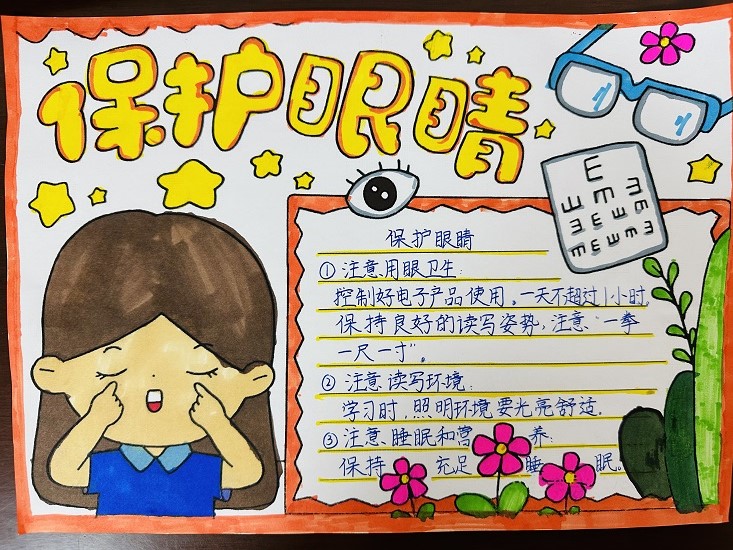 保护眼睛
保护眼睛
①注意用眼卫生:
控制好电子产品使用。一天不超过1小时,
保持良好的读写姿势,注意“一拳
一尺一寸”。
②注意读写环境:
学习时,照明环境要光亮舒适.
③注意睡眠和营养:
保持充足睡眠。
E